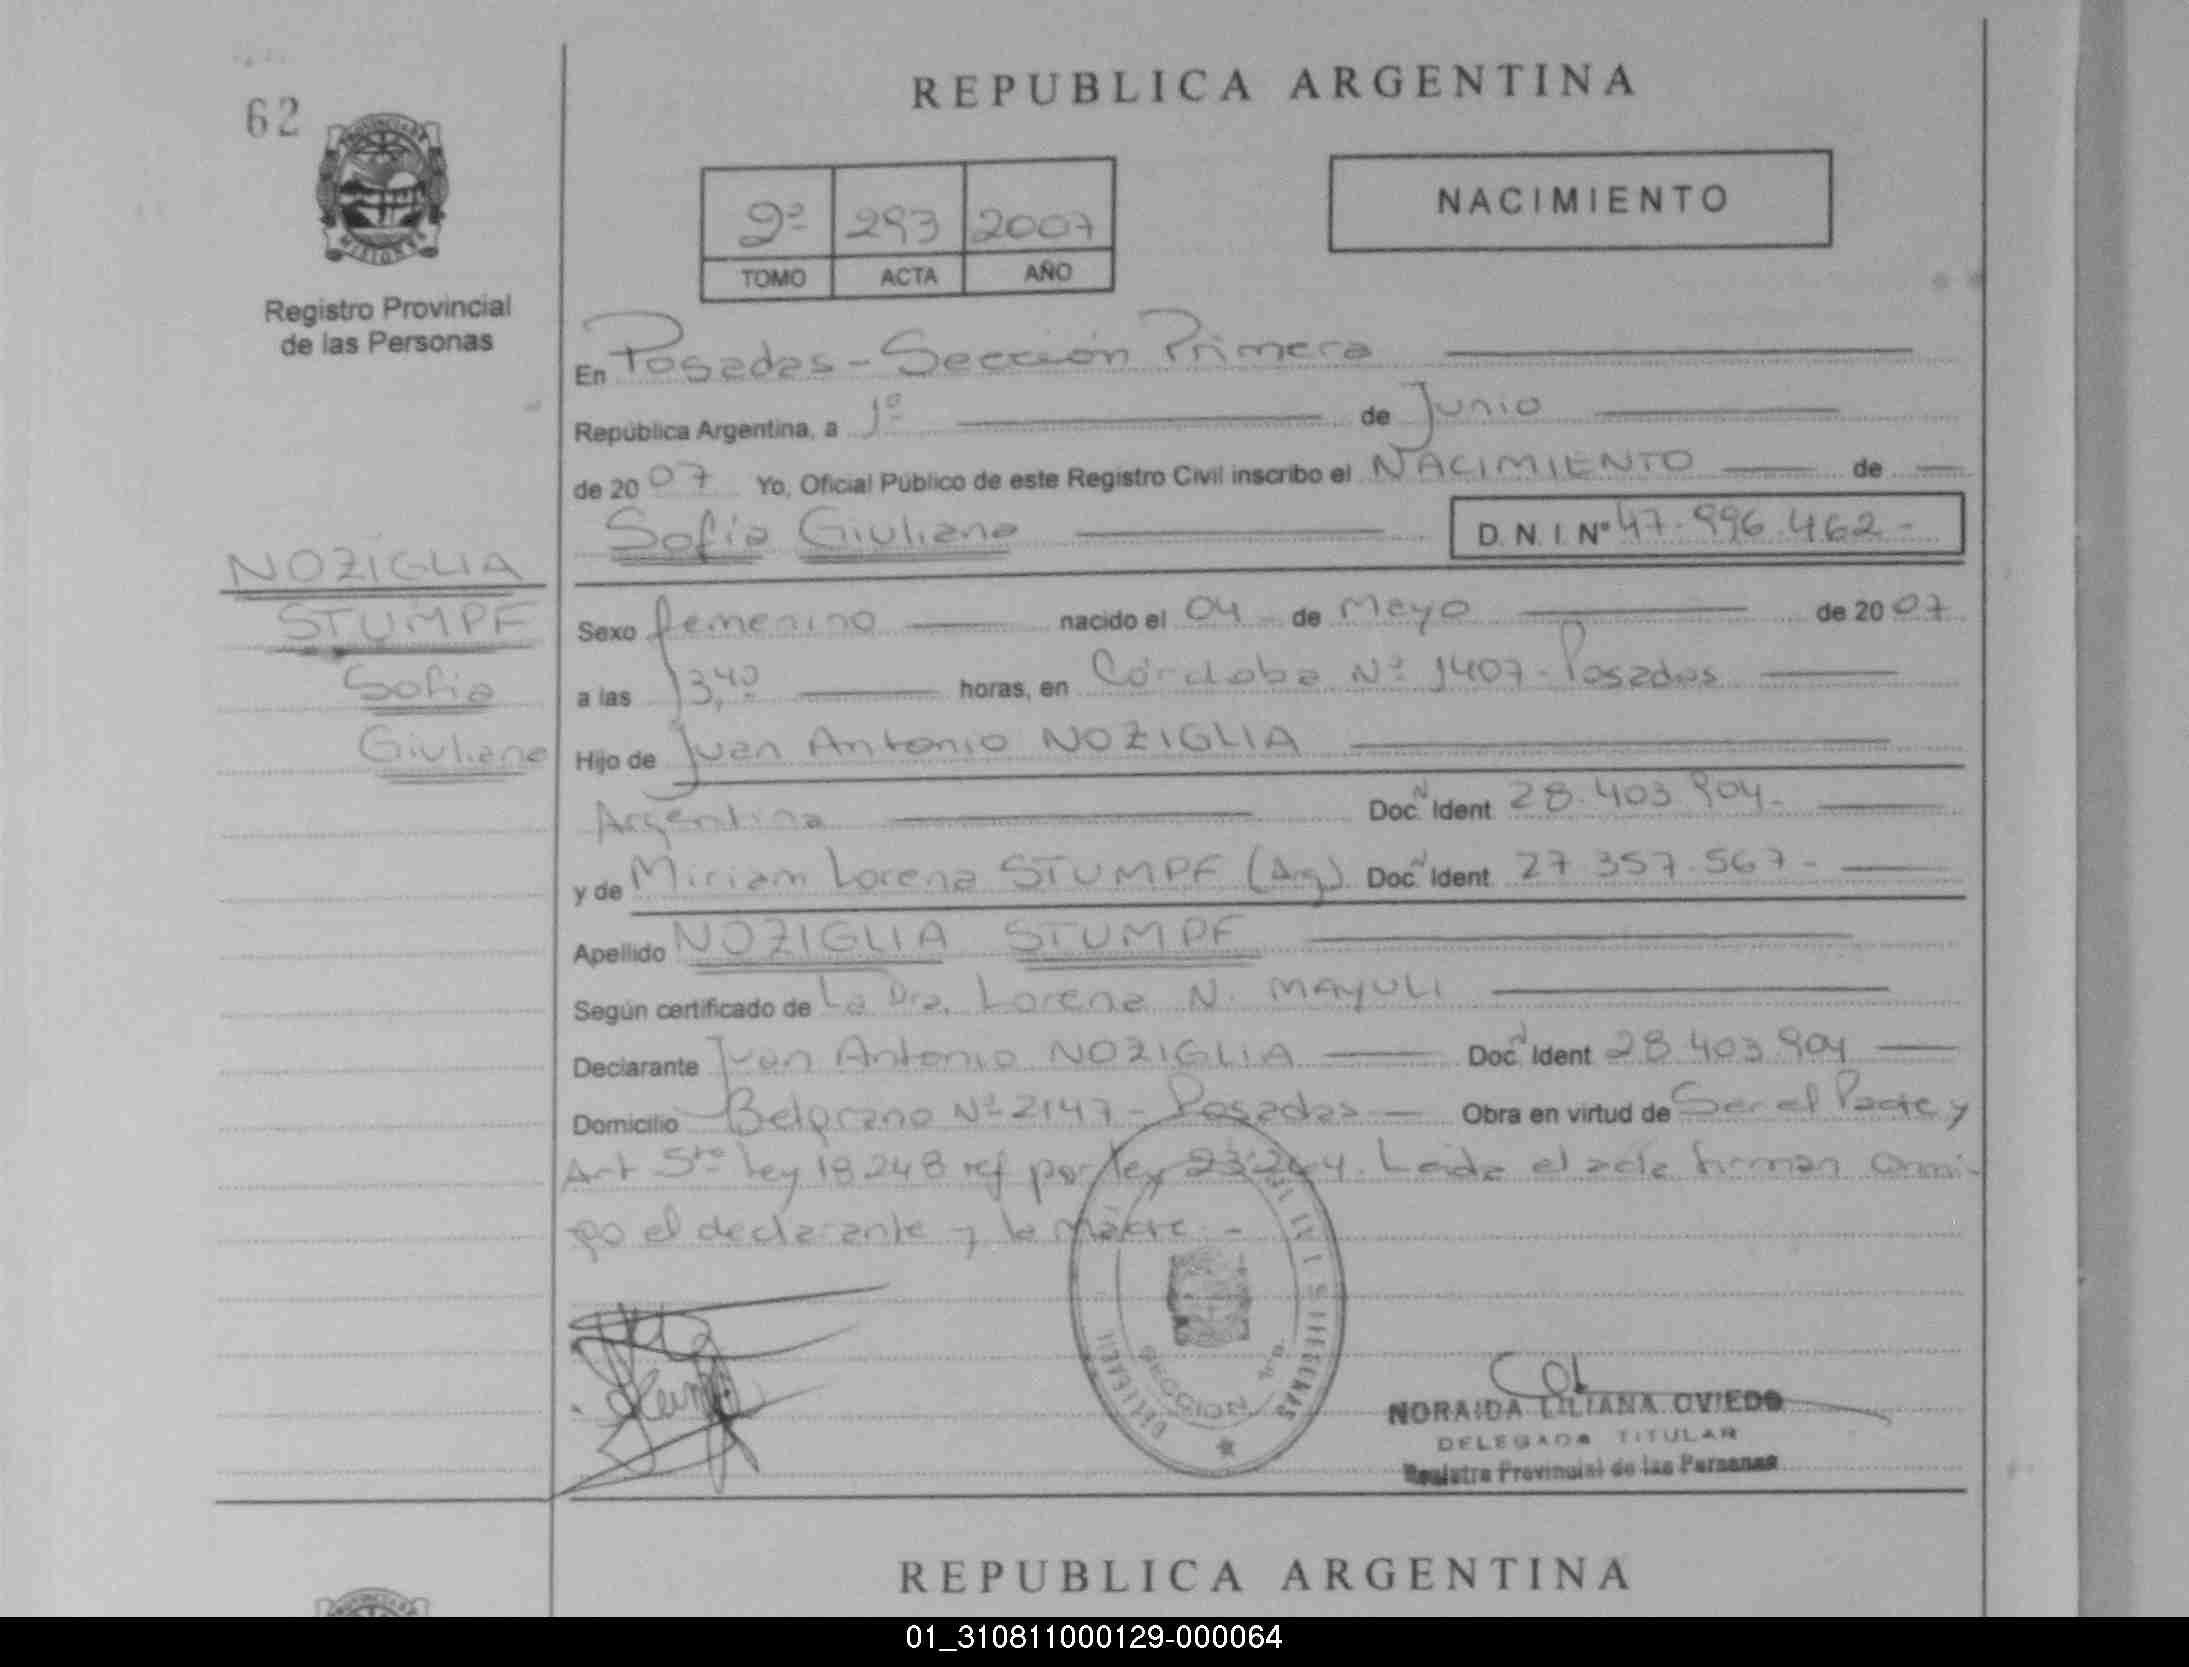 REPUBLICA ARGENTINA
62
PROVINCIA DE
MISIONES
Registro Provincial
de las Personas
2º 293 2007
TOMO ACTA AÑO
NACIMIENTO
En Posadas - Sección Primera
República Argentina, a 1º de Junio
de 2007 Yo, Oficial Público de este Registro Civil inscribo el NACIMIENTO de
Sofia Giuliana D.N.I. Nº 47.996.462-
NOZIGLIA
STUMPF
Sofia
Giuliana
Sexo femenino nacido el 04 de Mayo de 2007
a las 13,40 horas, en Córdoba Nº 1407 - Posadas
Hijo de Juan Antonio NOZIGLIA
Argentina Doc. Ident 28.403.904-
y de Miriam Lorena STUMPF (Arg) Doc. Ident 27.357.567-
Apellido NOZIGLIA STUMPF
Según certificado de La Dra. Lorena N. MAYULI
Declarante Juan Antonio NOZIGLIA Doc. Ident 28.403.904
Domicilio Belgrano Nº 2147 - Posadas Obra en virtud de Ser el Padre y
Art 5to Ley 18248 ref por Ley 23264. Leida el acta firman conmi-
go el declarante y la madre.-
SECCION 1ra.
NORAIDA LILIANA OVIEDO
DELEGADA TITULAR
Registro Provincial de las Personas
REPUBLICA ARGENTINA
01_310811000129-000064